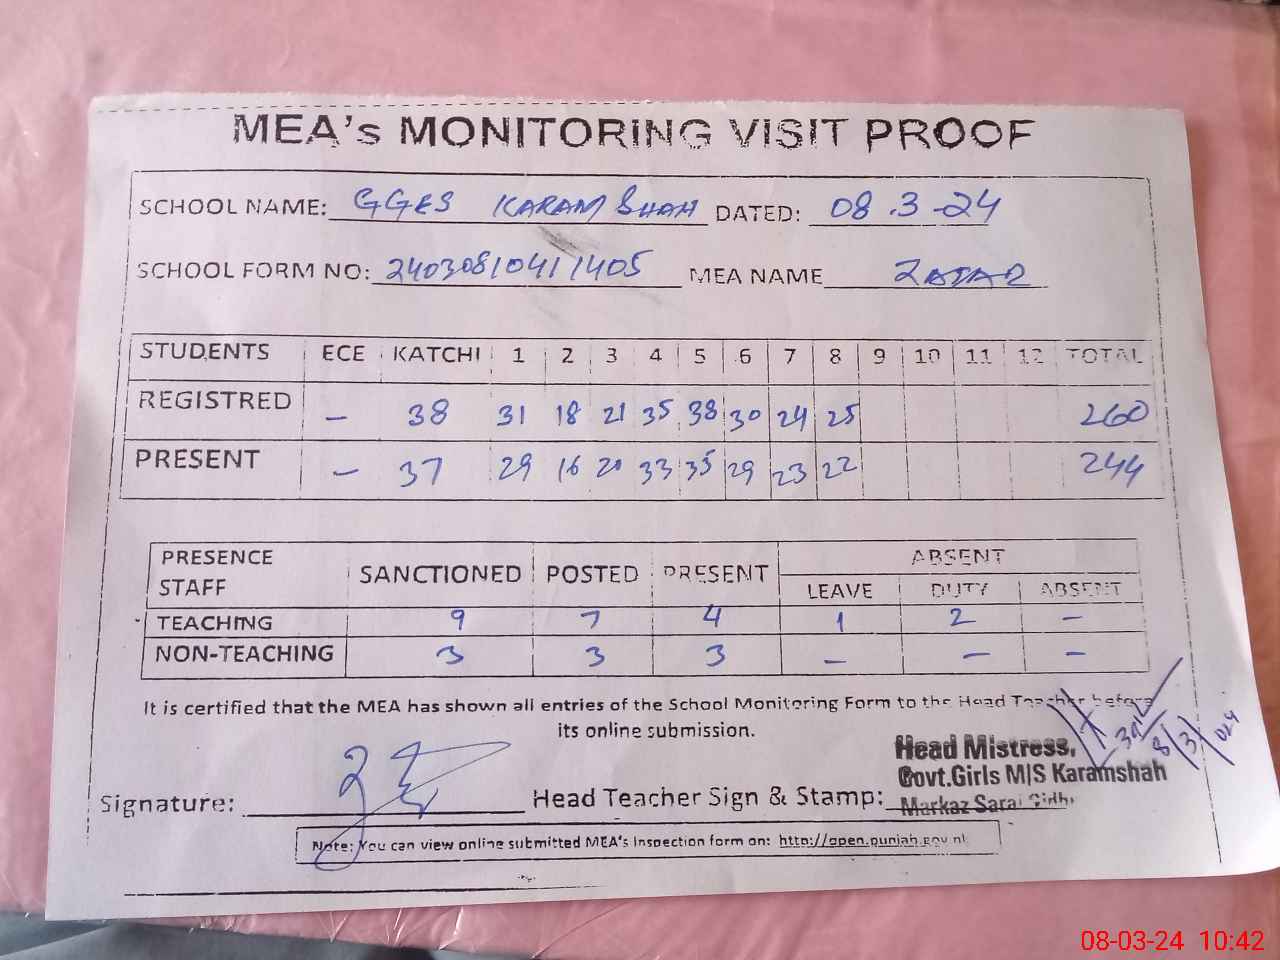 MEA's MONITORING VISIT PROOF
SCHOOL NAME: GGES KARAM SHAH DATED: 08.3-24
SCHOOL FORM NO: 24030810411405 MEA NAME ZAFAR
STUDENTS ECE KATCHI 1 2 3 4 5 6 7 8 9 10 11 12 TOTAL
REGISTRED - 38 31 18 21 35 38 30 24 25 260
PRESENT - 37 29 16 20 33 35 29 23 22 244
PRESENCE STAFF SANCTIONED POSTED PRESENT ABSENT
LEAVE DUTY ABSENT
TEACHING 9 7 4 1 2 -
NON-TEACHING 3 3 3 - - -
It is certified that the MEA has shown all entries of the School Monitoring Form to the Head Teacher before
its online submission.
Head Mistress,
Govt.Girls M/S Karamshah
Signature: Head Teacher Sign & Stamp: Markaz Sarai Sidhu
8/3/024
Note: You can view online submitted MEA's Inspection form on: http://open.punjab.gov.pk
08-03-24 10:42